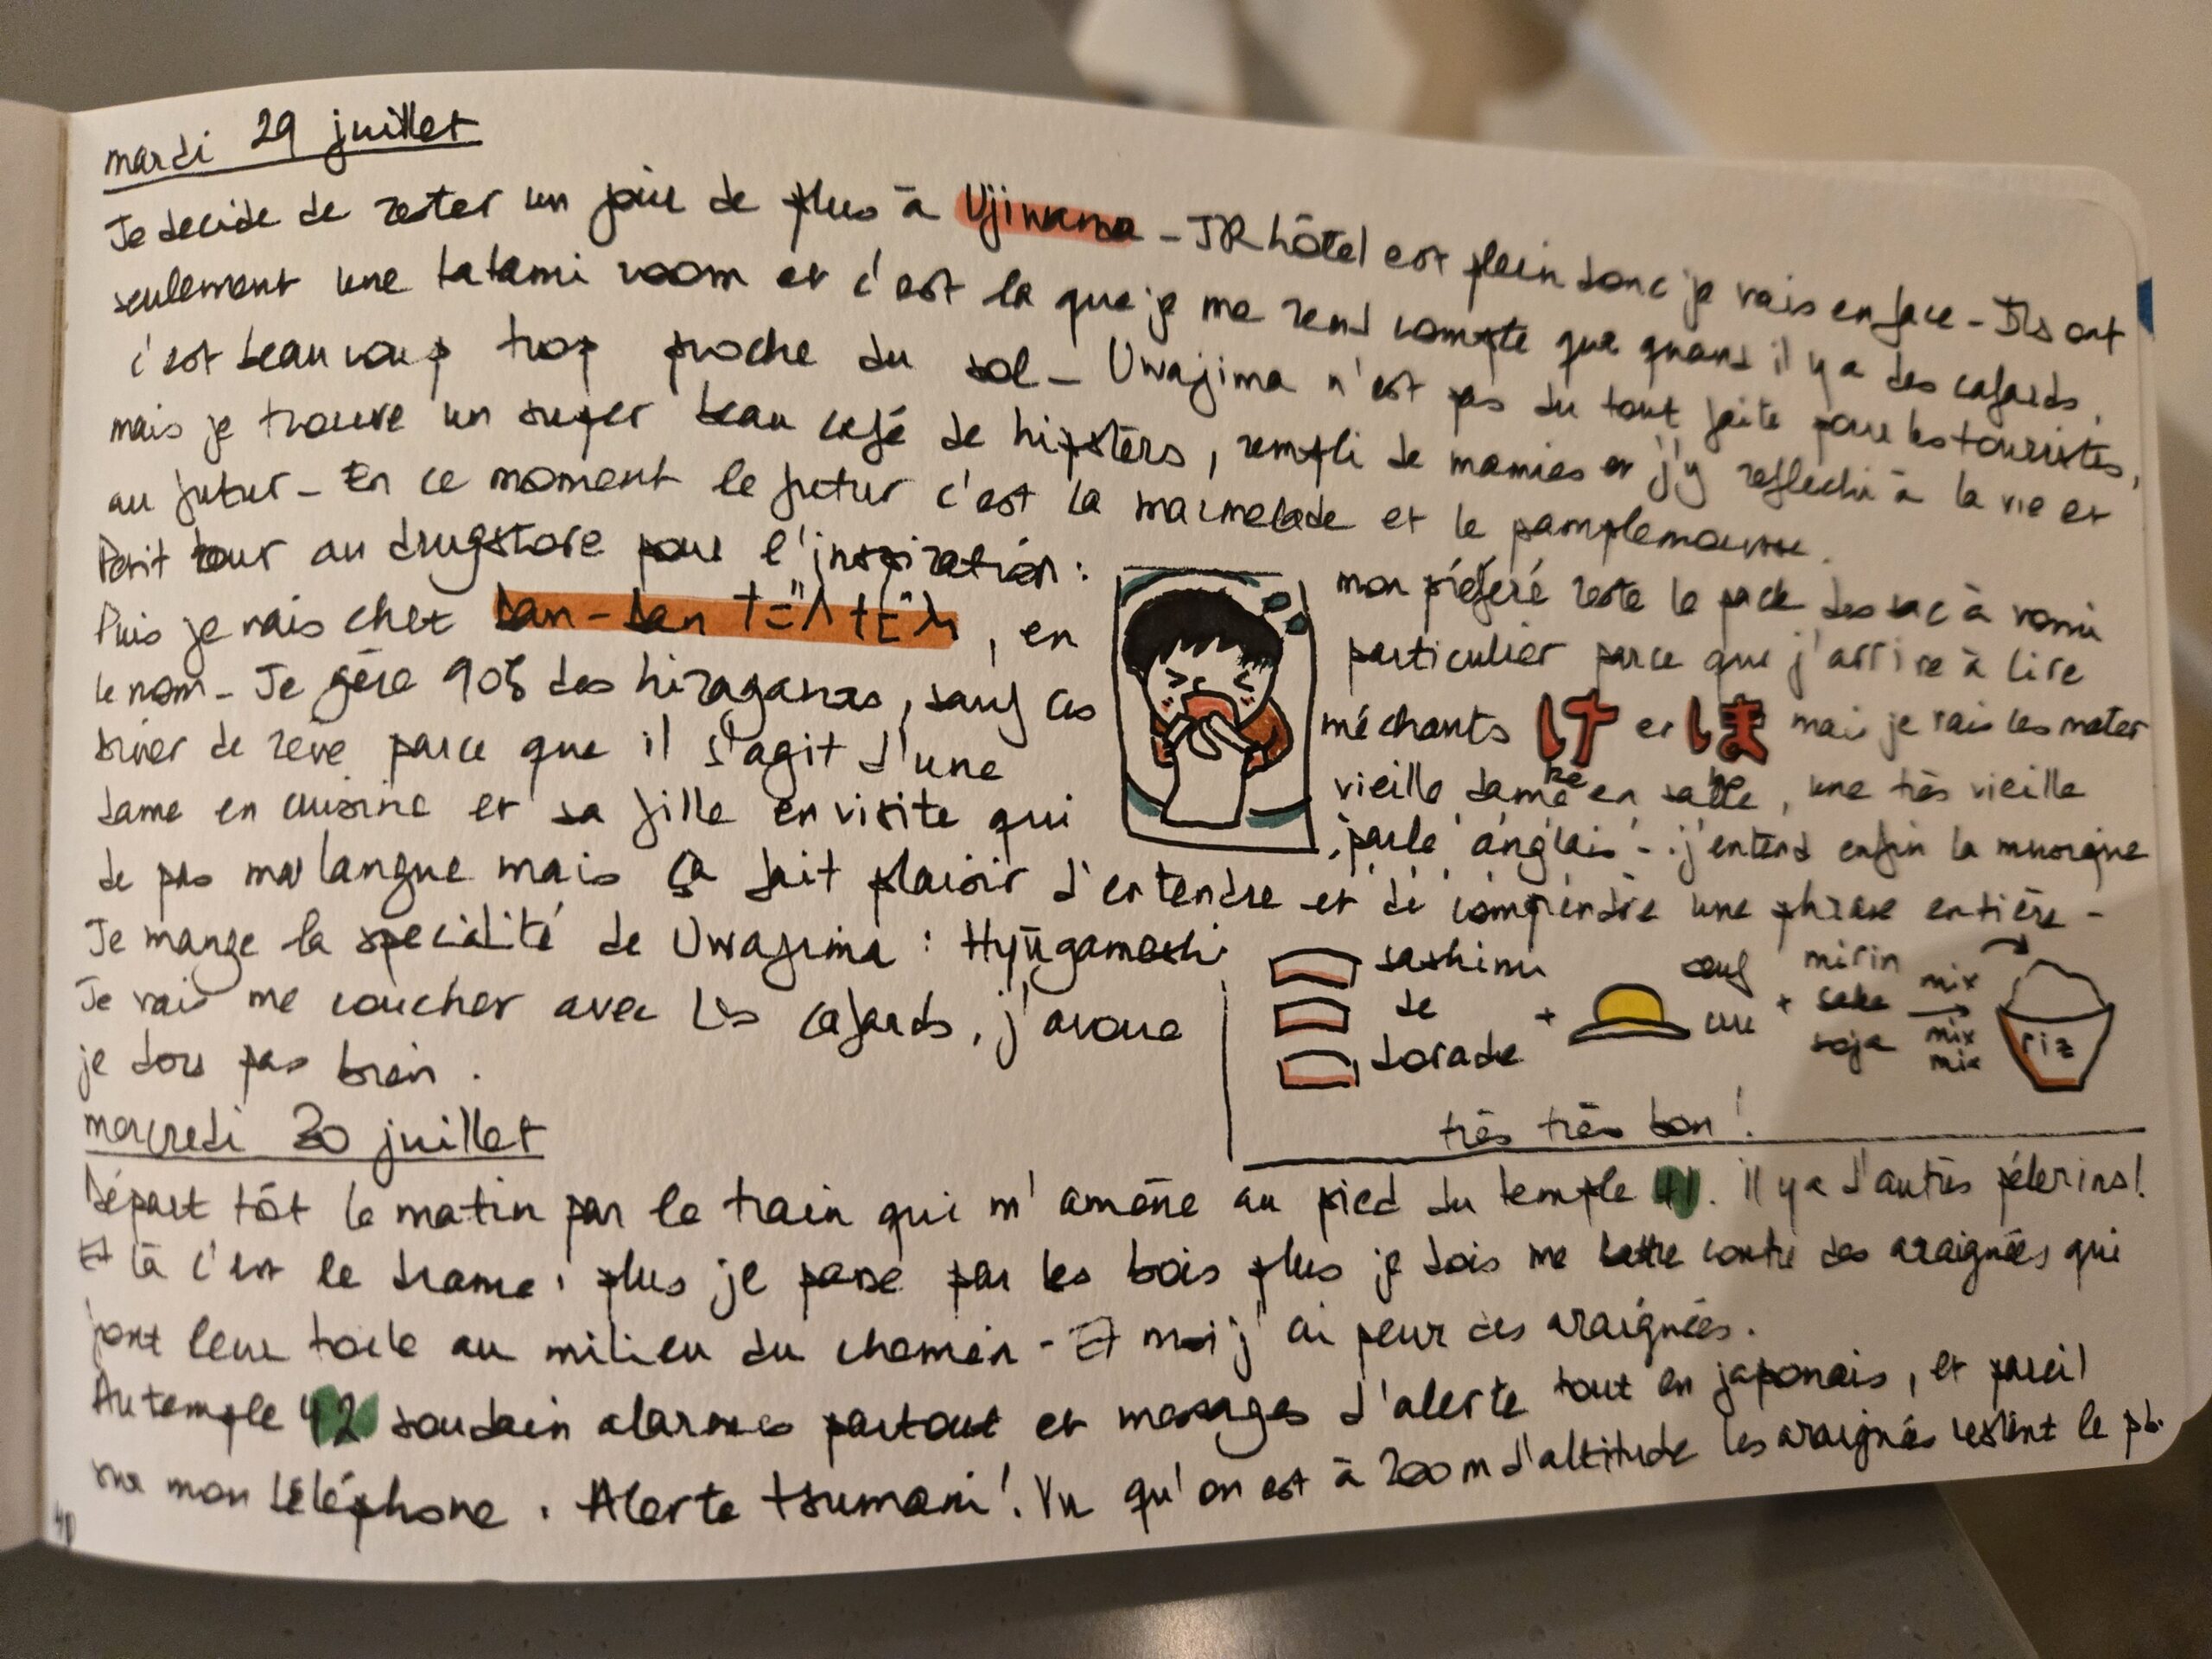 mardi 29 juillet
Je decide de rester un jour de plus à Ujiwama - JR hôtel est plein donc je vais en face - Ils ont
seulement une tatami room et c'est la que je me rend compte que quand il y a des cafards,
c'est beaucoup trop proche du sol - Uwajima n'est pas du tout faite pour les touristes,
mais je trouve un super beau café de hipsters, rempli de mamies et j'y reflechi à la vie et
au futur - En ce moment le futur c'est la marmelade et le pamplemousse.
Petit tour au drugstore pour l'inspiration : mon préféré reste le pack des sac à vomi
Puis je vais chez Dan-Dan だんだん, en particulier parce que j'arrive à lire
le nom - Je gère 90% des hiraganas, sauf ces méchants け et ほ mais je vais les mater
ke
diner de reve parce que il s'agit d'une vieille dame en salle, une très vieille
dame en cuisine et sa fille en visite qui parle anglais - j'entend enfin la musique
de pas ma langue mais ça fait plaisir d'entendre et de comprendre une phrase entière -
Je mange la spécialité de Uwajima : Hyūgameshi
Je vais me coucher avec les cafards, j'avoue
je dors pas bien.
sashimi de dorade
+
oeuf cru
+
mirin sake soja
mix mix mix
riz
très très bon !
mercredi 30 juillet
Départ tôt le matin par le train qui m'amène au pied du temple 41. Il y a d'autres pélerins!
Et là c'est le drame : plus je passe par les bois plus je dois me battre contre des araignées qui
font leur toile au milieu du chemin - Et moi j'ai peur des araignées.
Au temple 42 soudain alarmes partout et messages d'alerte tout en japonais, et pareil
sur mon téléphone. Alerte tsumami ! Vu qu'on est à 200m d'altitude les araignés restent le pb.
40